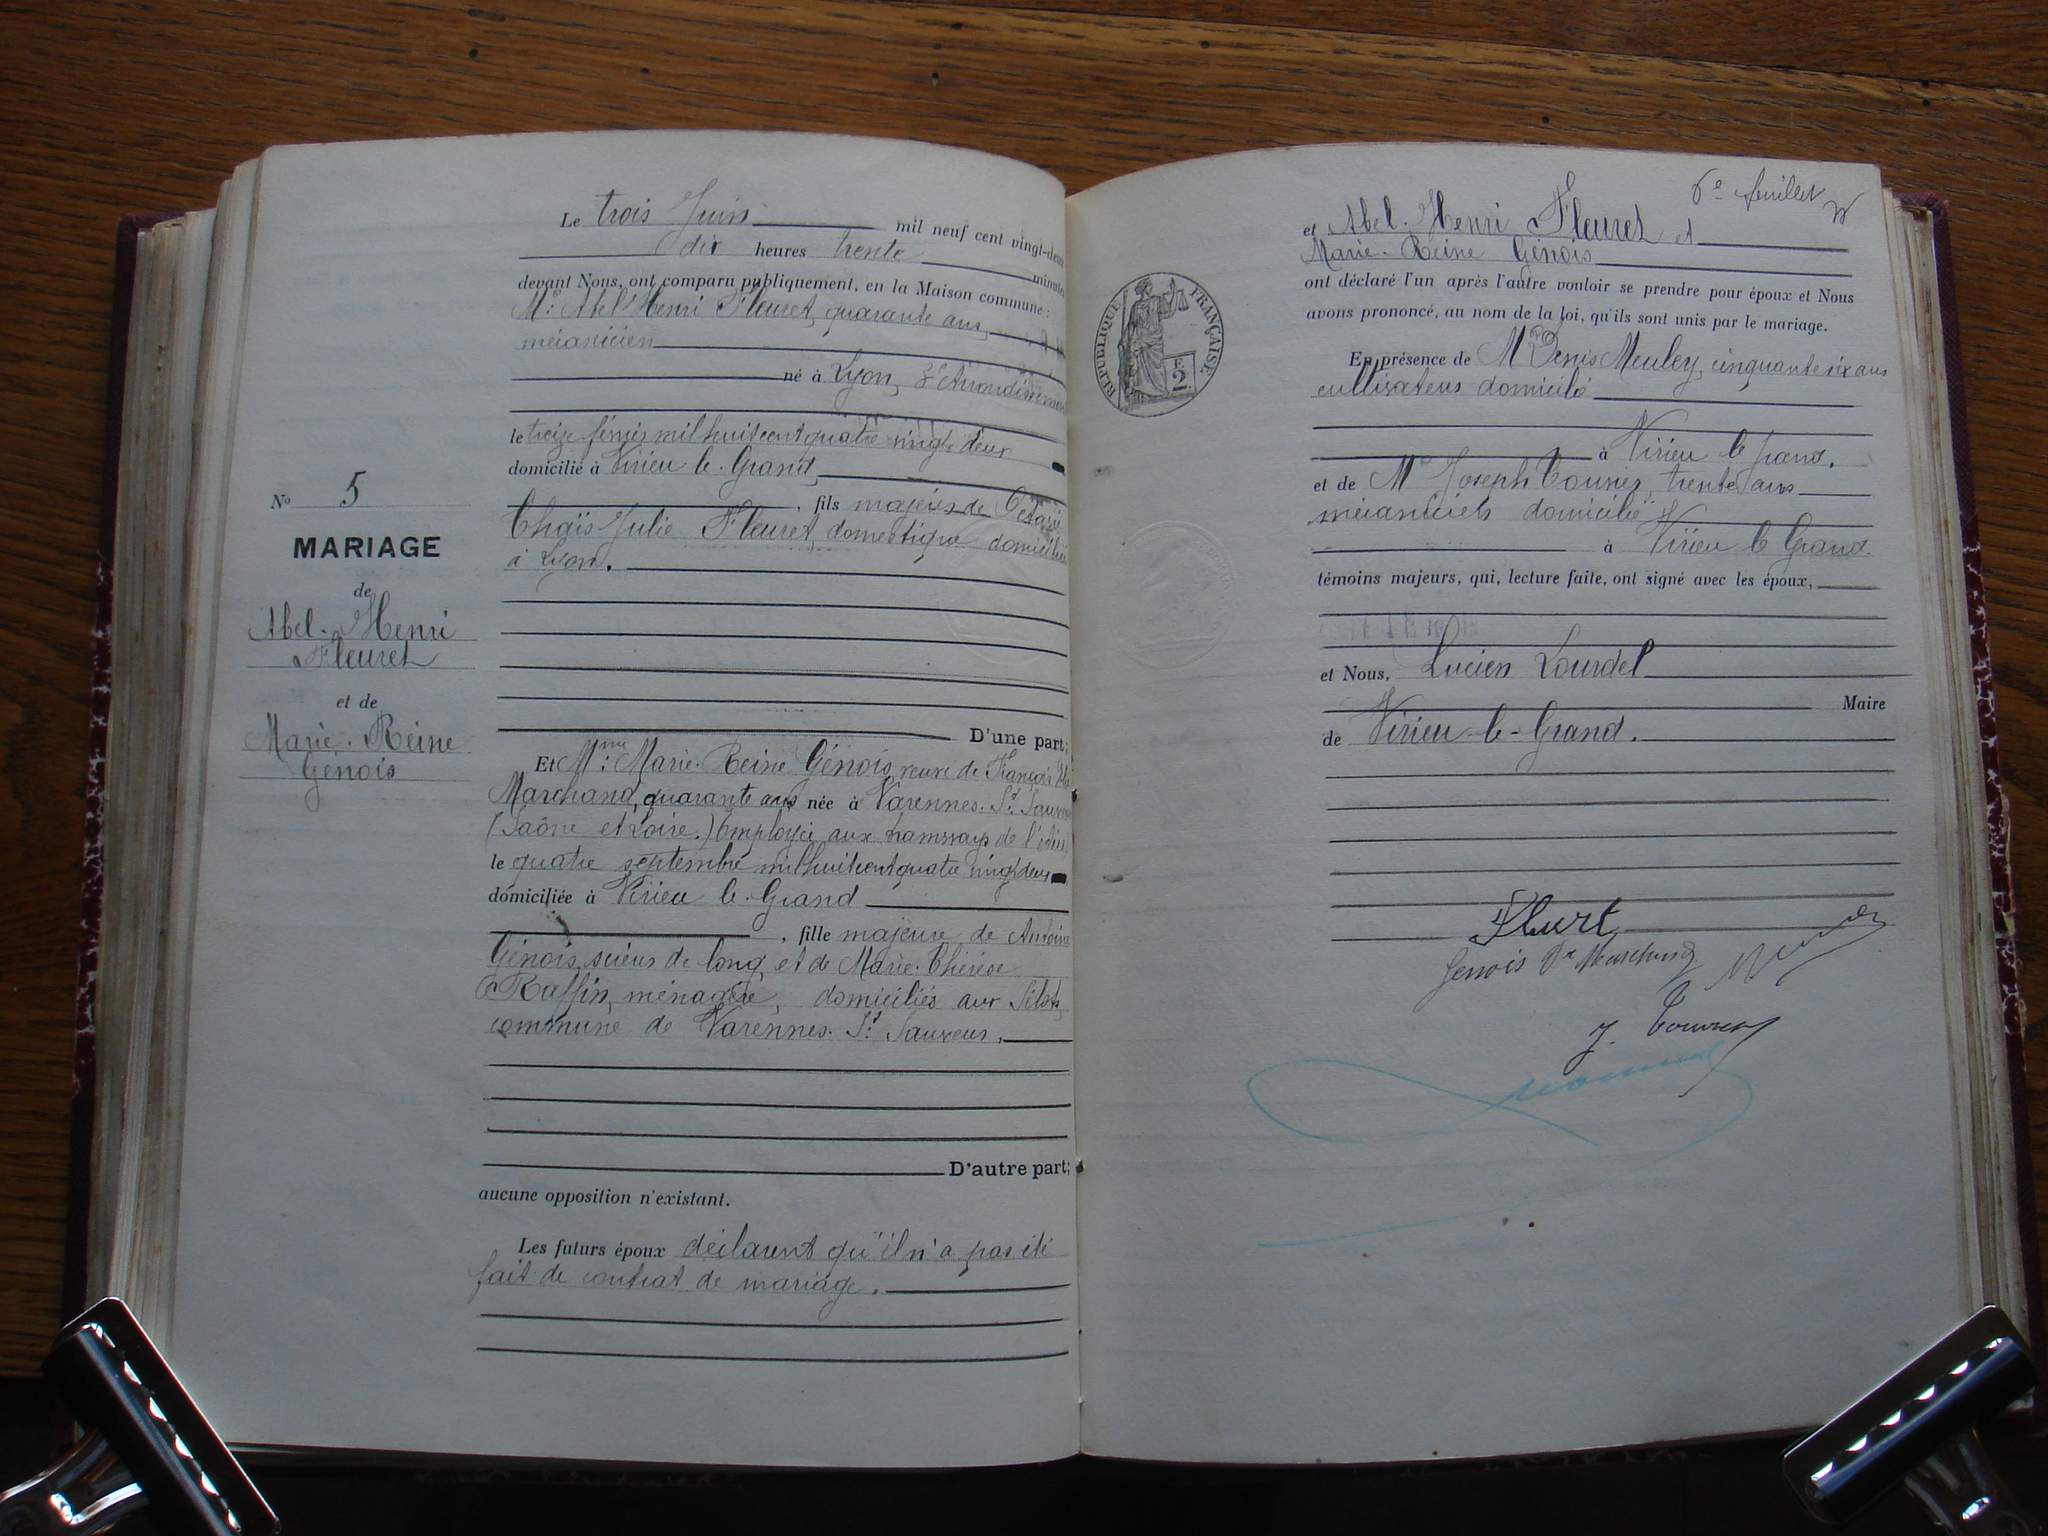 Le trois Juin mil neuf cent vingt-deux
dix heures trente minutes
devant Nous, ont comparu publiquement, en la Maison commune :
Mr. Abel Henri Fleuret, quarante ans,
mécanicien
né à Lyon, 3e Arrondissement
le treize février mil huit cent quatre vingt deux
domicilié à Virieu-le-Grand,
, fils majeur de
Thaïs Julie Fleuret, domestique domiciliée
à Lyon.
No 5
MARIAGE
de
Abel-Henri
Fleuret
et de
Marie-Reine
Génois
D'une part;
Et Mme: Marie-Reine Génois, veuve de François
Marchand, quarante ans née à Varennes-St Sauveur
(Saône et Loire.) Employée aux tramways de l'
le quatre septembre mil huit cent quatre vingt deux
domiciliée à Virieu le-Grand
, fille majeure de Antoine
Génois, scieur de long, et de Marie-Thérèse
Raffin, ménagère, domiciliés aux
commune de Varennes-St Sauveur.
D'autre part;
aucune opposition n'existant.
Les futurs époux déclarent qu'il n'a pas été
fait de contrat de mariage.
6e feuillet
et Abel-Henri Fleuret et
Marie-Reine Génois
ont déclaré l'un après l'autre vouloir se prendre pour époux et Nous
avons prononcé, au nom de la loi, qu'ils sont unis par le mariage.
RÉPUBLIQUE FRANÇAISE
2F
En présence de Mr Denis Meuley, cinquante six ans
cultivateur domicilié
à Virieu le grand.
et de Mr Joseph Tournier, trente ans
mécanicien domicilié
à Virieu le Grand.
témoins majeurs, qui, lecture faite, ont signé avec les époux,
et Nous, Lucien Lourdel
Maire
de Virieu-le-Grand.
Flurt
Genois Ve Marchand
J.